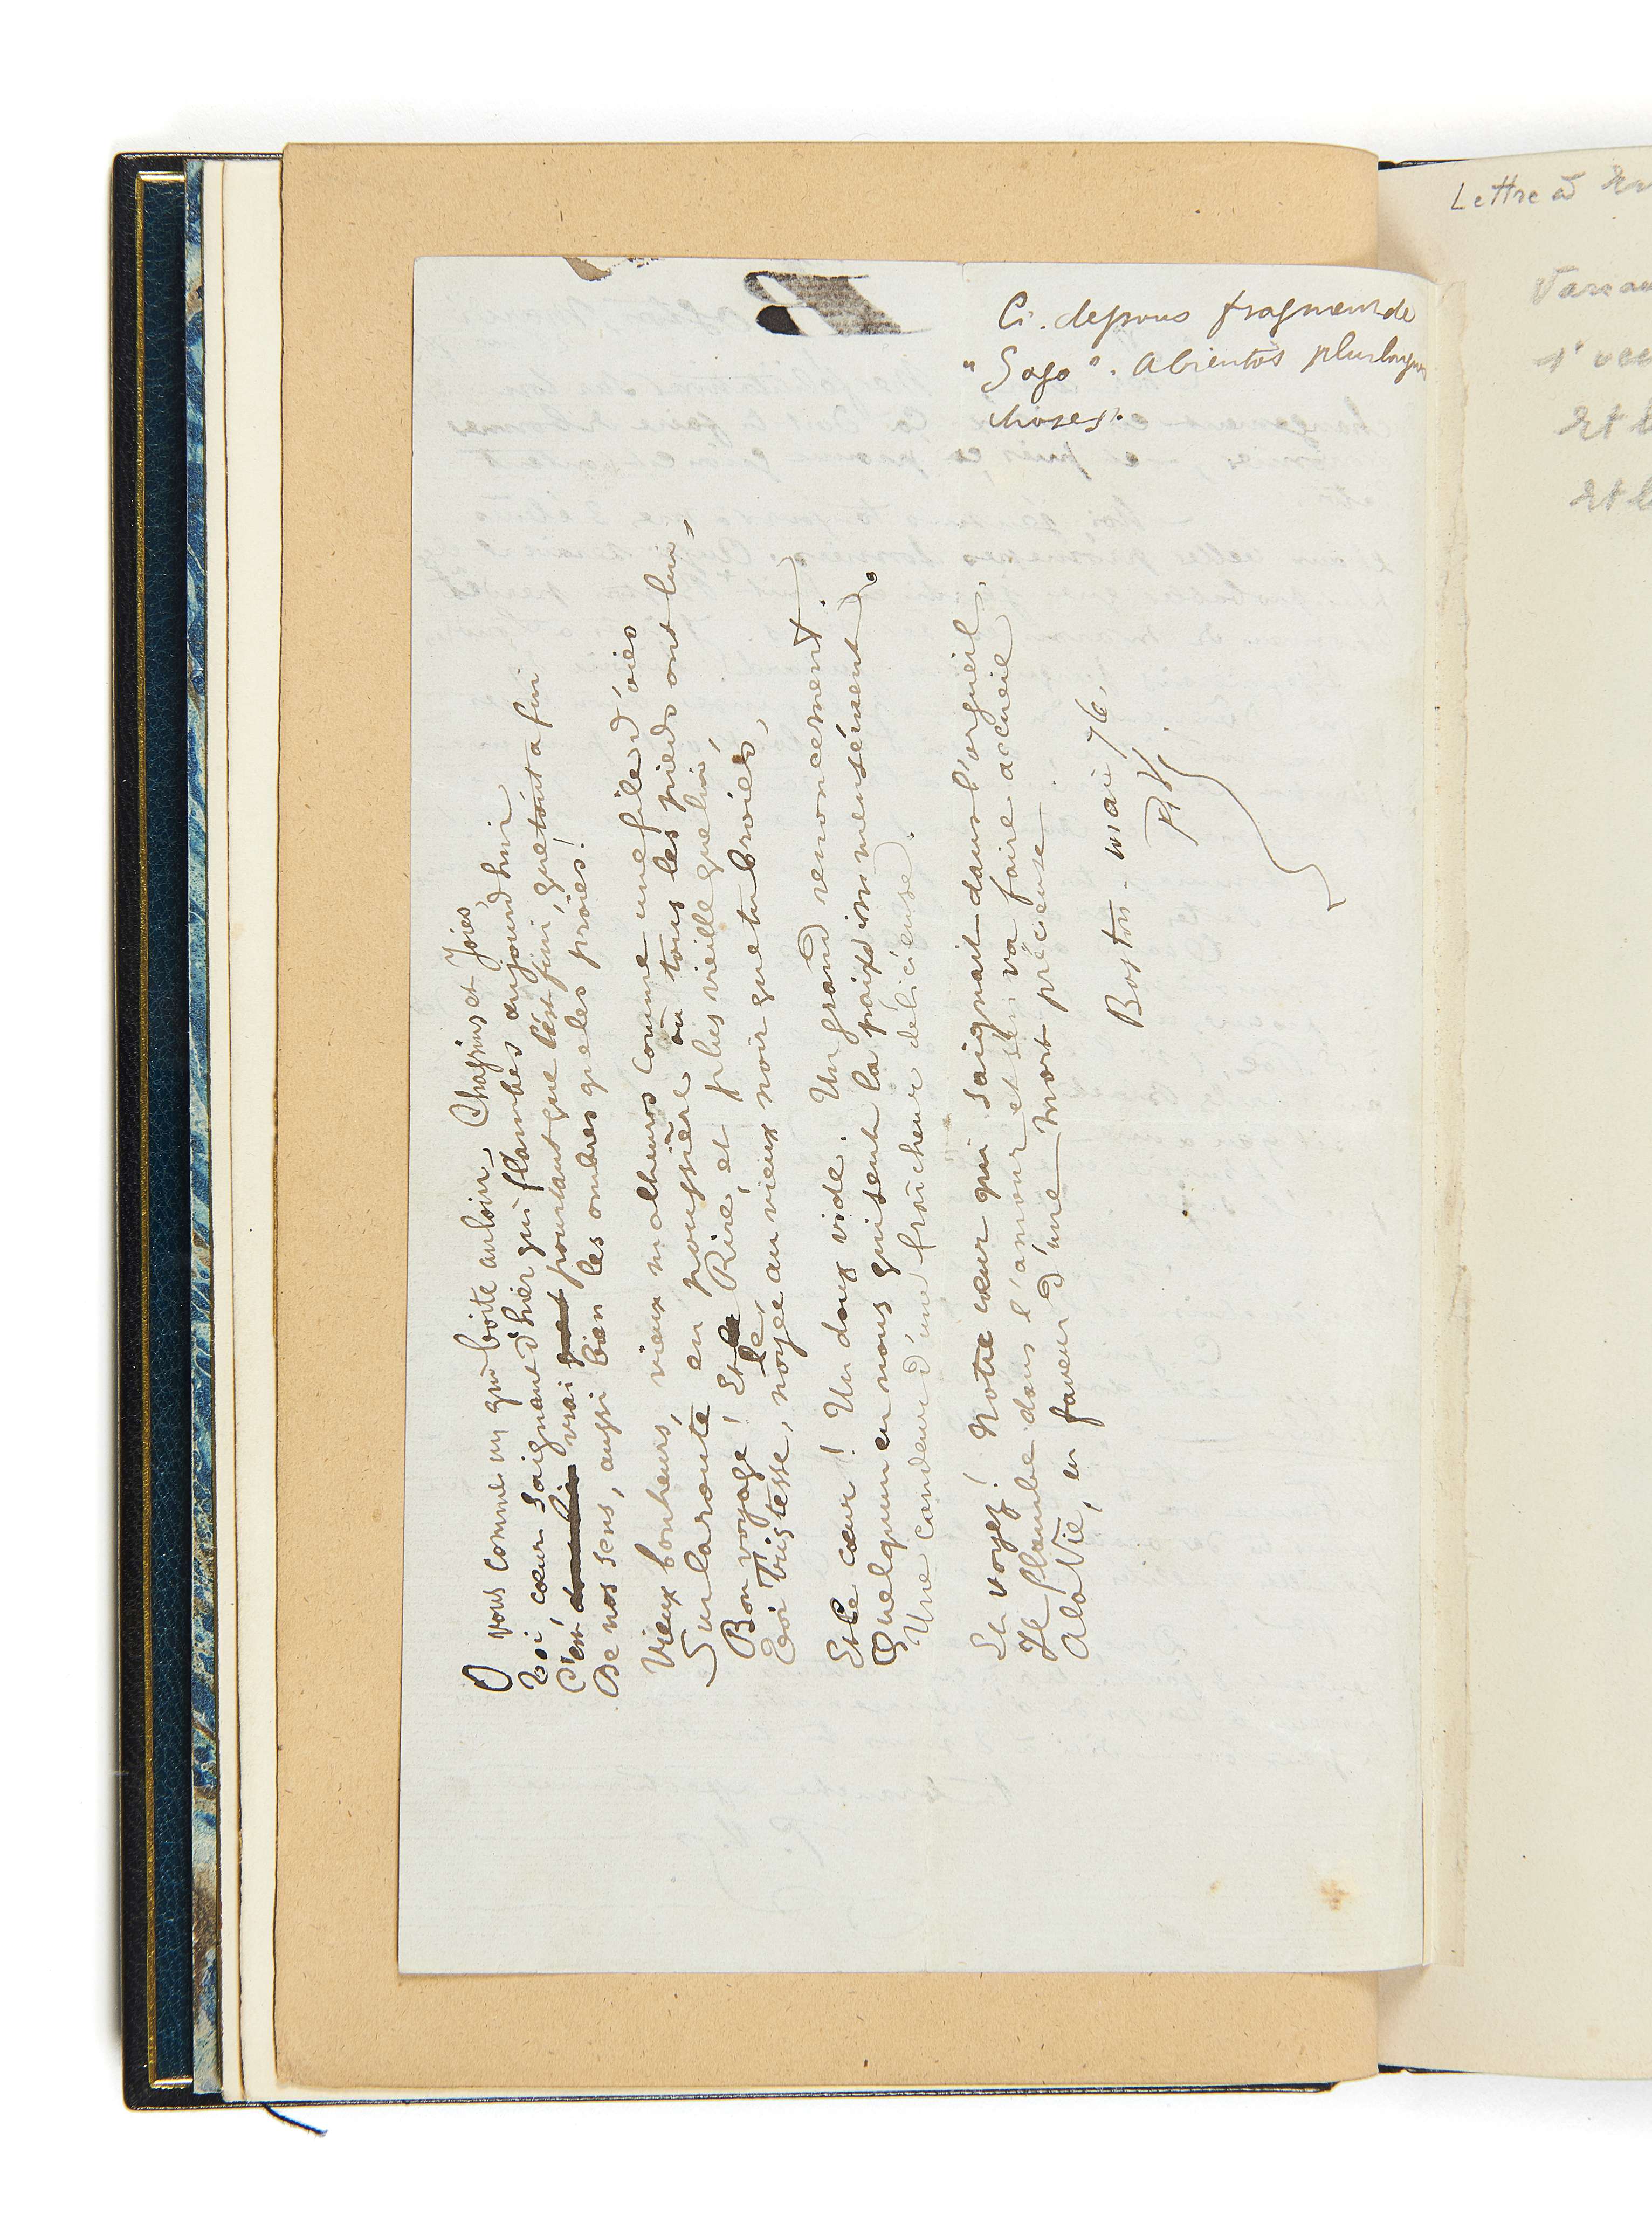 Ci-dessous fragment de
"Sago". A bientôt plus longues
choses.
O vous comme un qui boite au loin, Chagrins et Joies,
Toi, cœur saignant d'hier qui flambes aujourd'hui
C'est vrai pourtant que c'est fini, que tout a fui
De nos sens, aussi bien les ombres que les proies!
Vieux bonheurs, vieux malheurs comme une file d'oies
Sur la route en poussière où tous les pieds ont lui,
Bon voyage! Et le Rire, et plus vieille que lui,
Toi Tristesse, noyée au vieux noir que tu broies,
Et le cœur! Un doux vide. Un grand renoncement.
Quelqu'un en nous qui sent la paix immensément,
Une candeur d'une fraîcheur délicieuse.
Et voyez! Notre cœur qui saignait dans l'orgueil,
Il flambe dans l'amour et s'en va faire accueil
A la Vie, en faveur d'une Mort précieuse.
Boston - mai 76,
PV
Lettre à